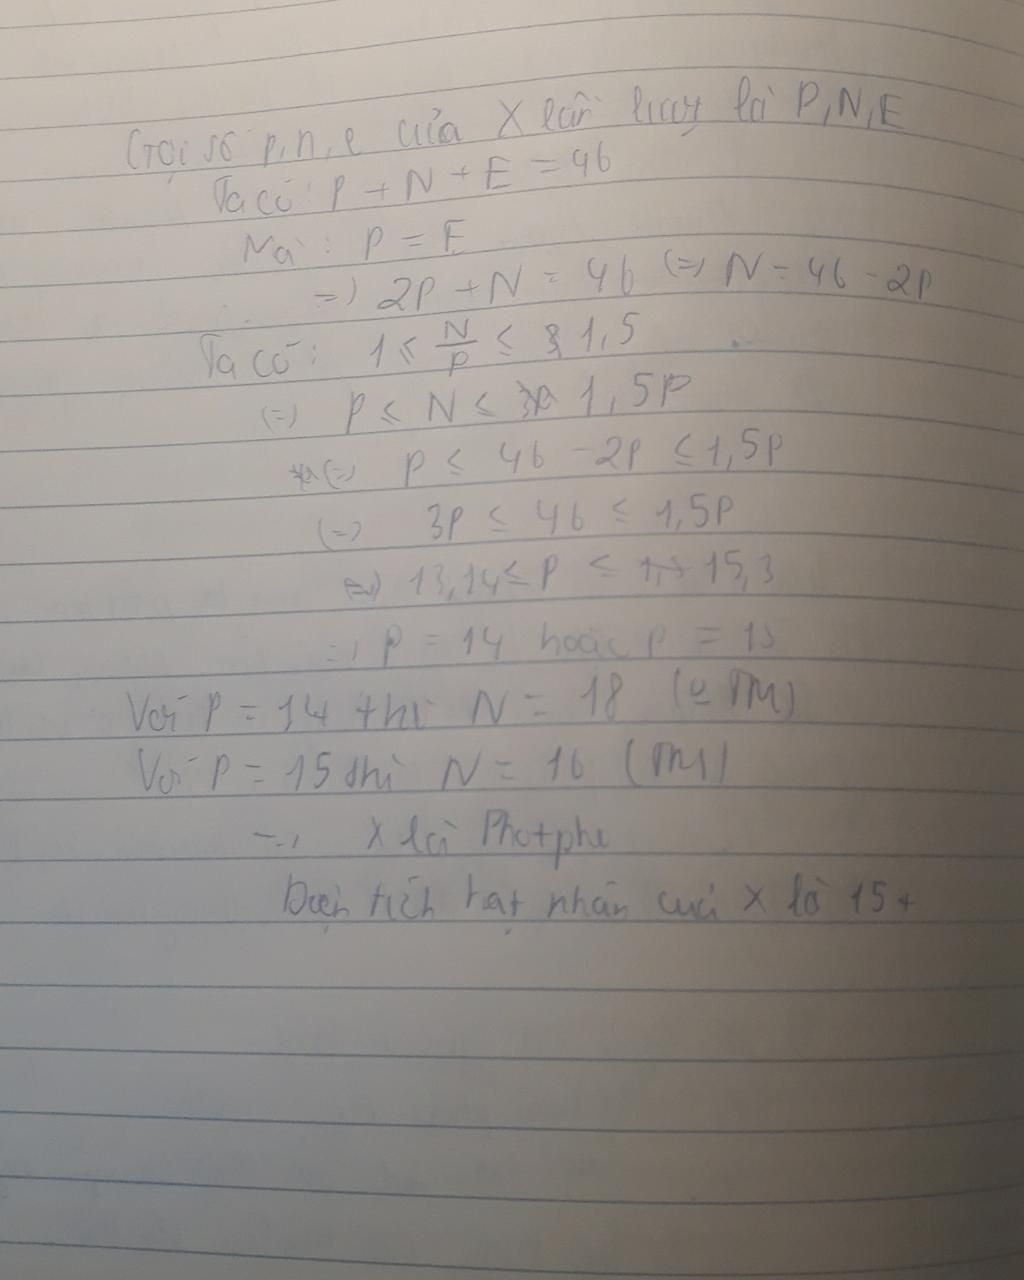 Gọi số p, n, e của X lần lượt là P, N, E
Ta có: P + N + E = 46
Mà: P = E
=) 2P + N = 46 (=) N = 46 - 2P
Ta có: 1 ≤ N/P ≤ 1,5
(=) P ≤ N ≤ 1,5P
(=) P ≤ 46 - 2P ≤ 1,5P
(=) 3P ≤ 46 ≤ 1,5P
=) 13,14 ≤ P ≤ 15,3
=) P = 14 hoặc P = 15
Với P = 14 thì N = 18 ( TM)
Với P = 15 thì N = 16 (TM)
=) X là Photpho
Điện tích hạt nhân của X là 15+